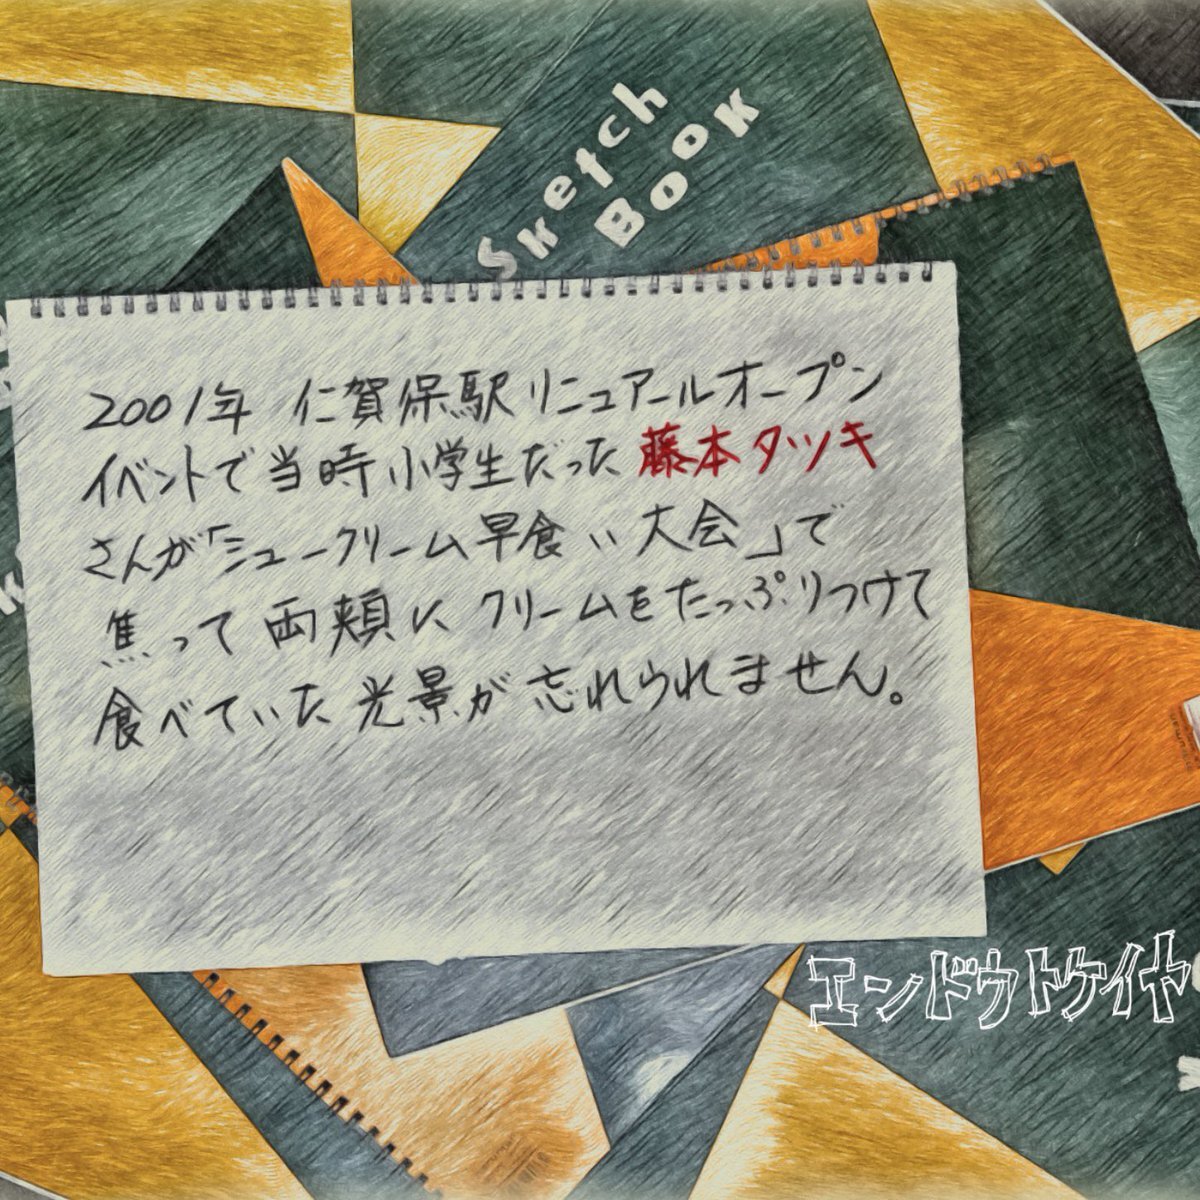 Sketch
Book
2001年 仁賀保駅リニューアルオープン
イベントで当時小学生だった藤本タツキ
さんが「ミュークリーム早食い大会」で
焦って両頬にクリームをたっぷりつけて
食べていた光景が忘れられません。
エンドウトケイヤ